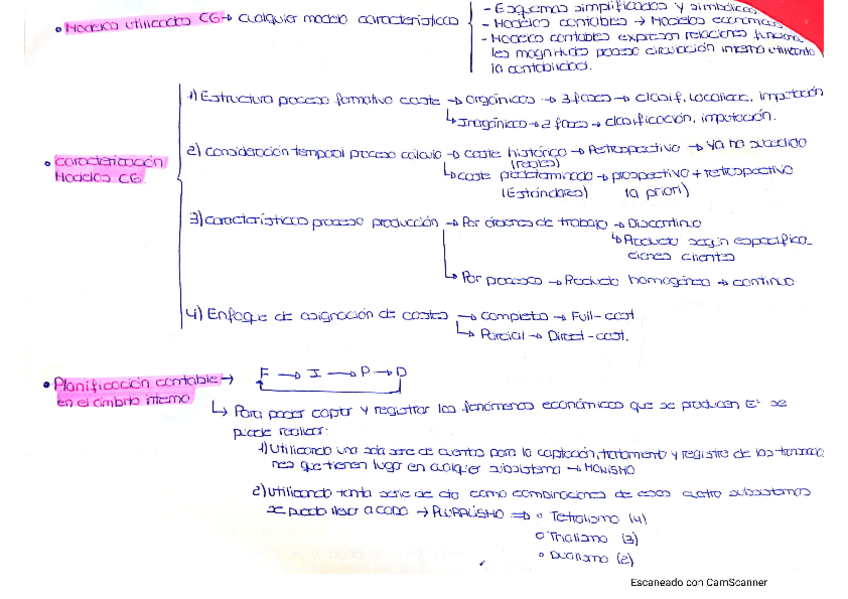 - Esquemas simplificados y simbólicos
• Modelos utilizados CG → cualquier modelo características
- Modelos contables → Modelos económicos
- Modelos contables expresan relaciones funciona
les magnitudes proceso circulación interna utilizando
la contabilidad.
1) Estructura proceso formativo coste → orgánicos → 3 fases → clasif, localizac, imputación
↳ Inorgánicos → 2 fases → clasificación, imputación.
• Caracterización
Modelos CG.
2) Consideración temporal proceso cálculo → coste histórico → Retrospectivo → ya ha sucedido
(reales)
↳ coste predeterminado → prospectivo + retrospectivo
(Estándares) (a priori)
3) características proceso producción → Por órdenes de trabajo → Discontinuo
↳ Producto según especifica-
ciones clientes
↳ Por procesos → Producto homogéneo → continuo
4) Enfoque de asignación de costes → completo → Full-cost
↳ Parcial → Direct-cost.
• Planificación contable →
en el ámbito interno
F → I → P → D
↳ Para poder captar y registrar los fenómenos económicos que se producen se
puede realizar:
1) Utilizando una sola serie de cuentas para la captación, tratamiento y registro de los
nos que tienen lugar en cualquier subsistema → MONISMO
2) Utilizando tanta serie de cta como combinaciones de esos cuatro subsistemas
se puede llevar a cabo → PLURALISMO ⇒ ○ Tetralismo (4)
○ Trialismo (3)
○ Dualismo (2)
Escaneado con CamScanner